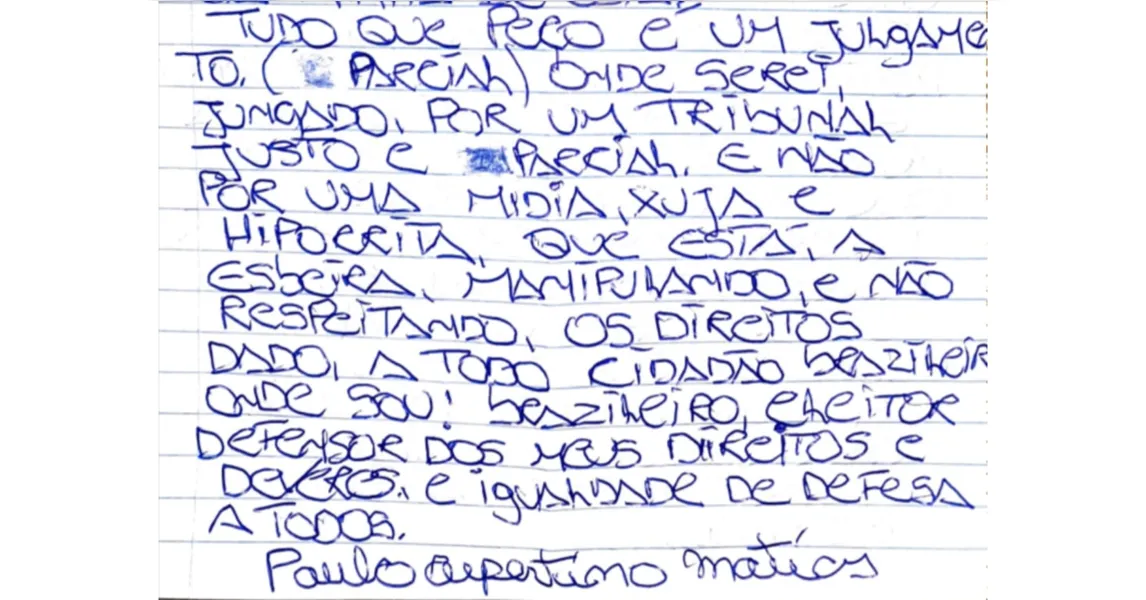 TUDO QUE PEÇO E UM JULGAME
TO. ( PARCIAL) ONDE SEREI,
JUNGADO, POR UM TRIBUNAL
JUSTO E PARCIAL. E NÃO
POR UMA MIDIA, XUJA e
HIPOCRITA, QUE ESTÁ, A
ESbEIRA, MANIPULANDO, e NÃO
RESPEITANDO, OS DIREITOS
DADO, A TODO CIDADÃO bRAZILEIR
ONDE SOU! bRAZILEIRO, ELEITOR
DEFENSOR DOS MEUS DIREITOS e
DEVEROS. e igualDADE DE DEFESA
A TODOS.
Paulo Cupertino Matias